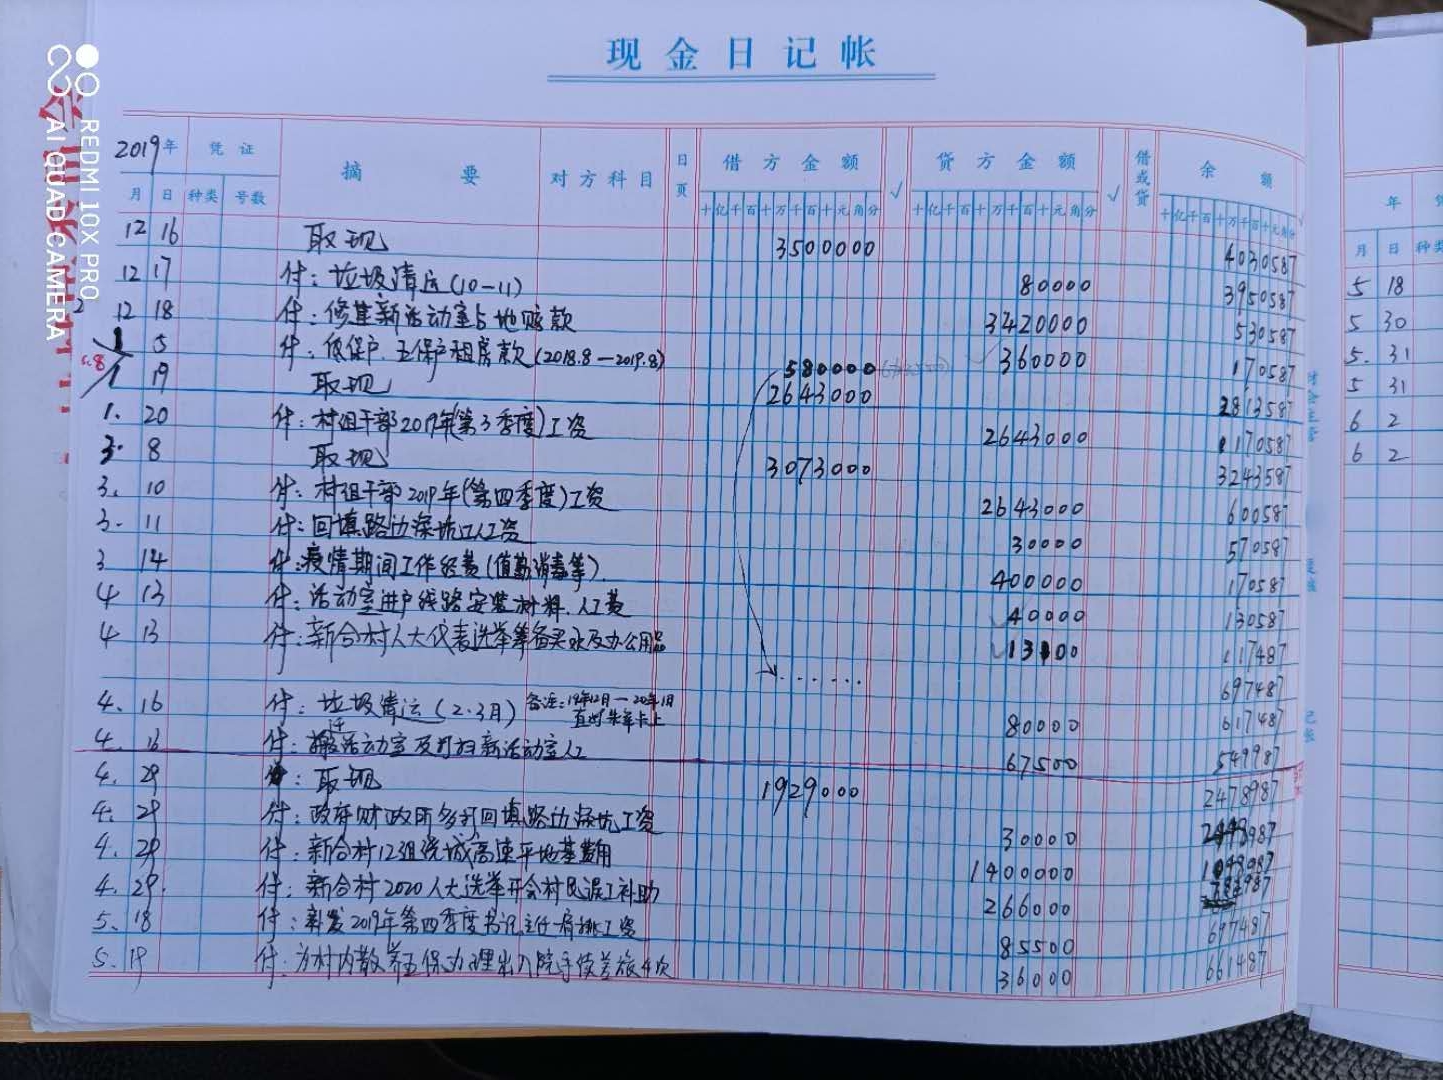 现金日记帐
2019年 凭证 摘要 对方科目 日页 借方金额 √ 贷方金额 √ 借或贷 余额
月 日 种类 号数 十亿千百十万千百十元角分 十亿千百十万千百十元角分 十亿千百十万千百十元角分
12 16 取现 3500000 4030587
12 17 付：垃圾清运(10-11) 80000 3950587
12 18 付：修建新活动室占地赔款 3420000 530587
1 5 付：低保户、五保户租房款(2018.8—2019.8) 360000 170587
580000
1 19 取现 2643000 2813587
1. 20 付：村组干部2019年(第3季度)工资 2643000 170587
3. 8 取现 3073000 3243587
3. 10 付：村组干部2019年(第四季度)工资 2643000 600587
3. 11 付：回填路边深坑工人工资 30000 570587
3 14 付：疫情期间工作经费(值勤消毒等) 400000 170587
4 13 付：活动室进户线路安装材料、人工费 40000 130587
4 13 付：新合村人大代表选举筹备买水及办公用品 13100 117487
....... 697487
4. 16 付：垃圾清运(2.3月) 备注：19年12月—20年1月 80000 617487
4. 16 付：搬迁活动室及打扫新活动室人工 67500 549987
4. 29 取现 1929000 2478987
4. 29 付：政府财政所多打回填路边深坑工资 30000
4. 29 付：新合村12组绕城高速平地基费用 1400000
4. 29. 付：新合村2020人大选举开会村民误工补助 266000
5. 18 付：补发2019年第四季度书记主任 工资 85500 697487
5. 19 付：为村内散养五保办理出入院手续差旅4次 36000 661487
年
月 日 种类
5 18
5 30
5. 31
5 31
6 2
6 2
REDMI 10X PRO
AI QUAD CAMERA